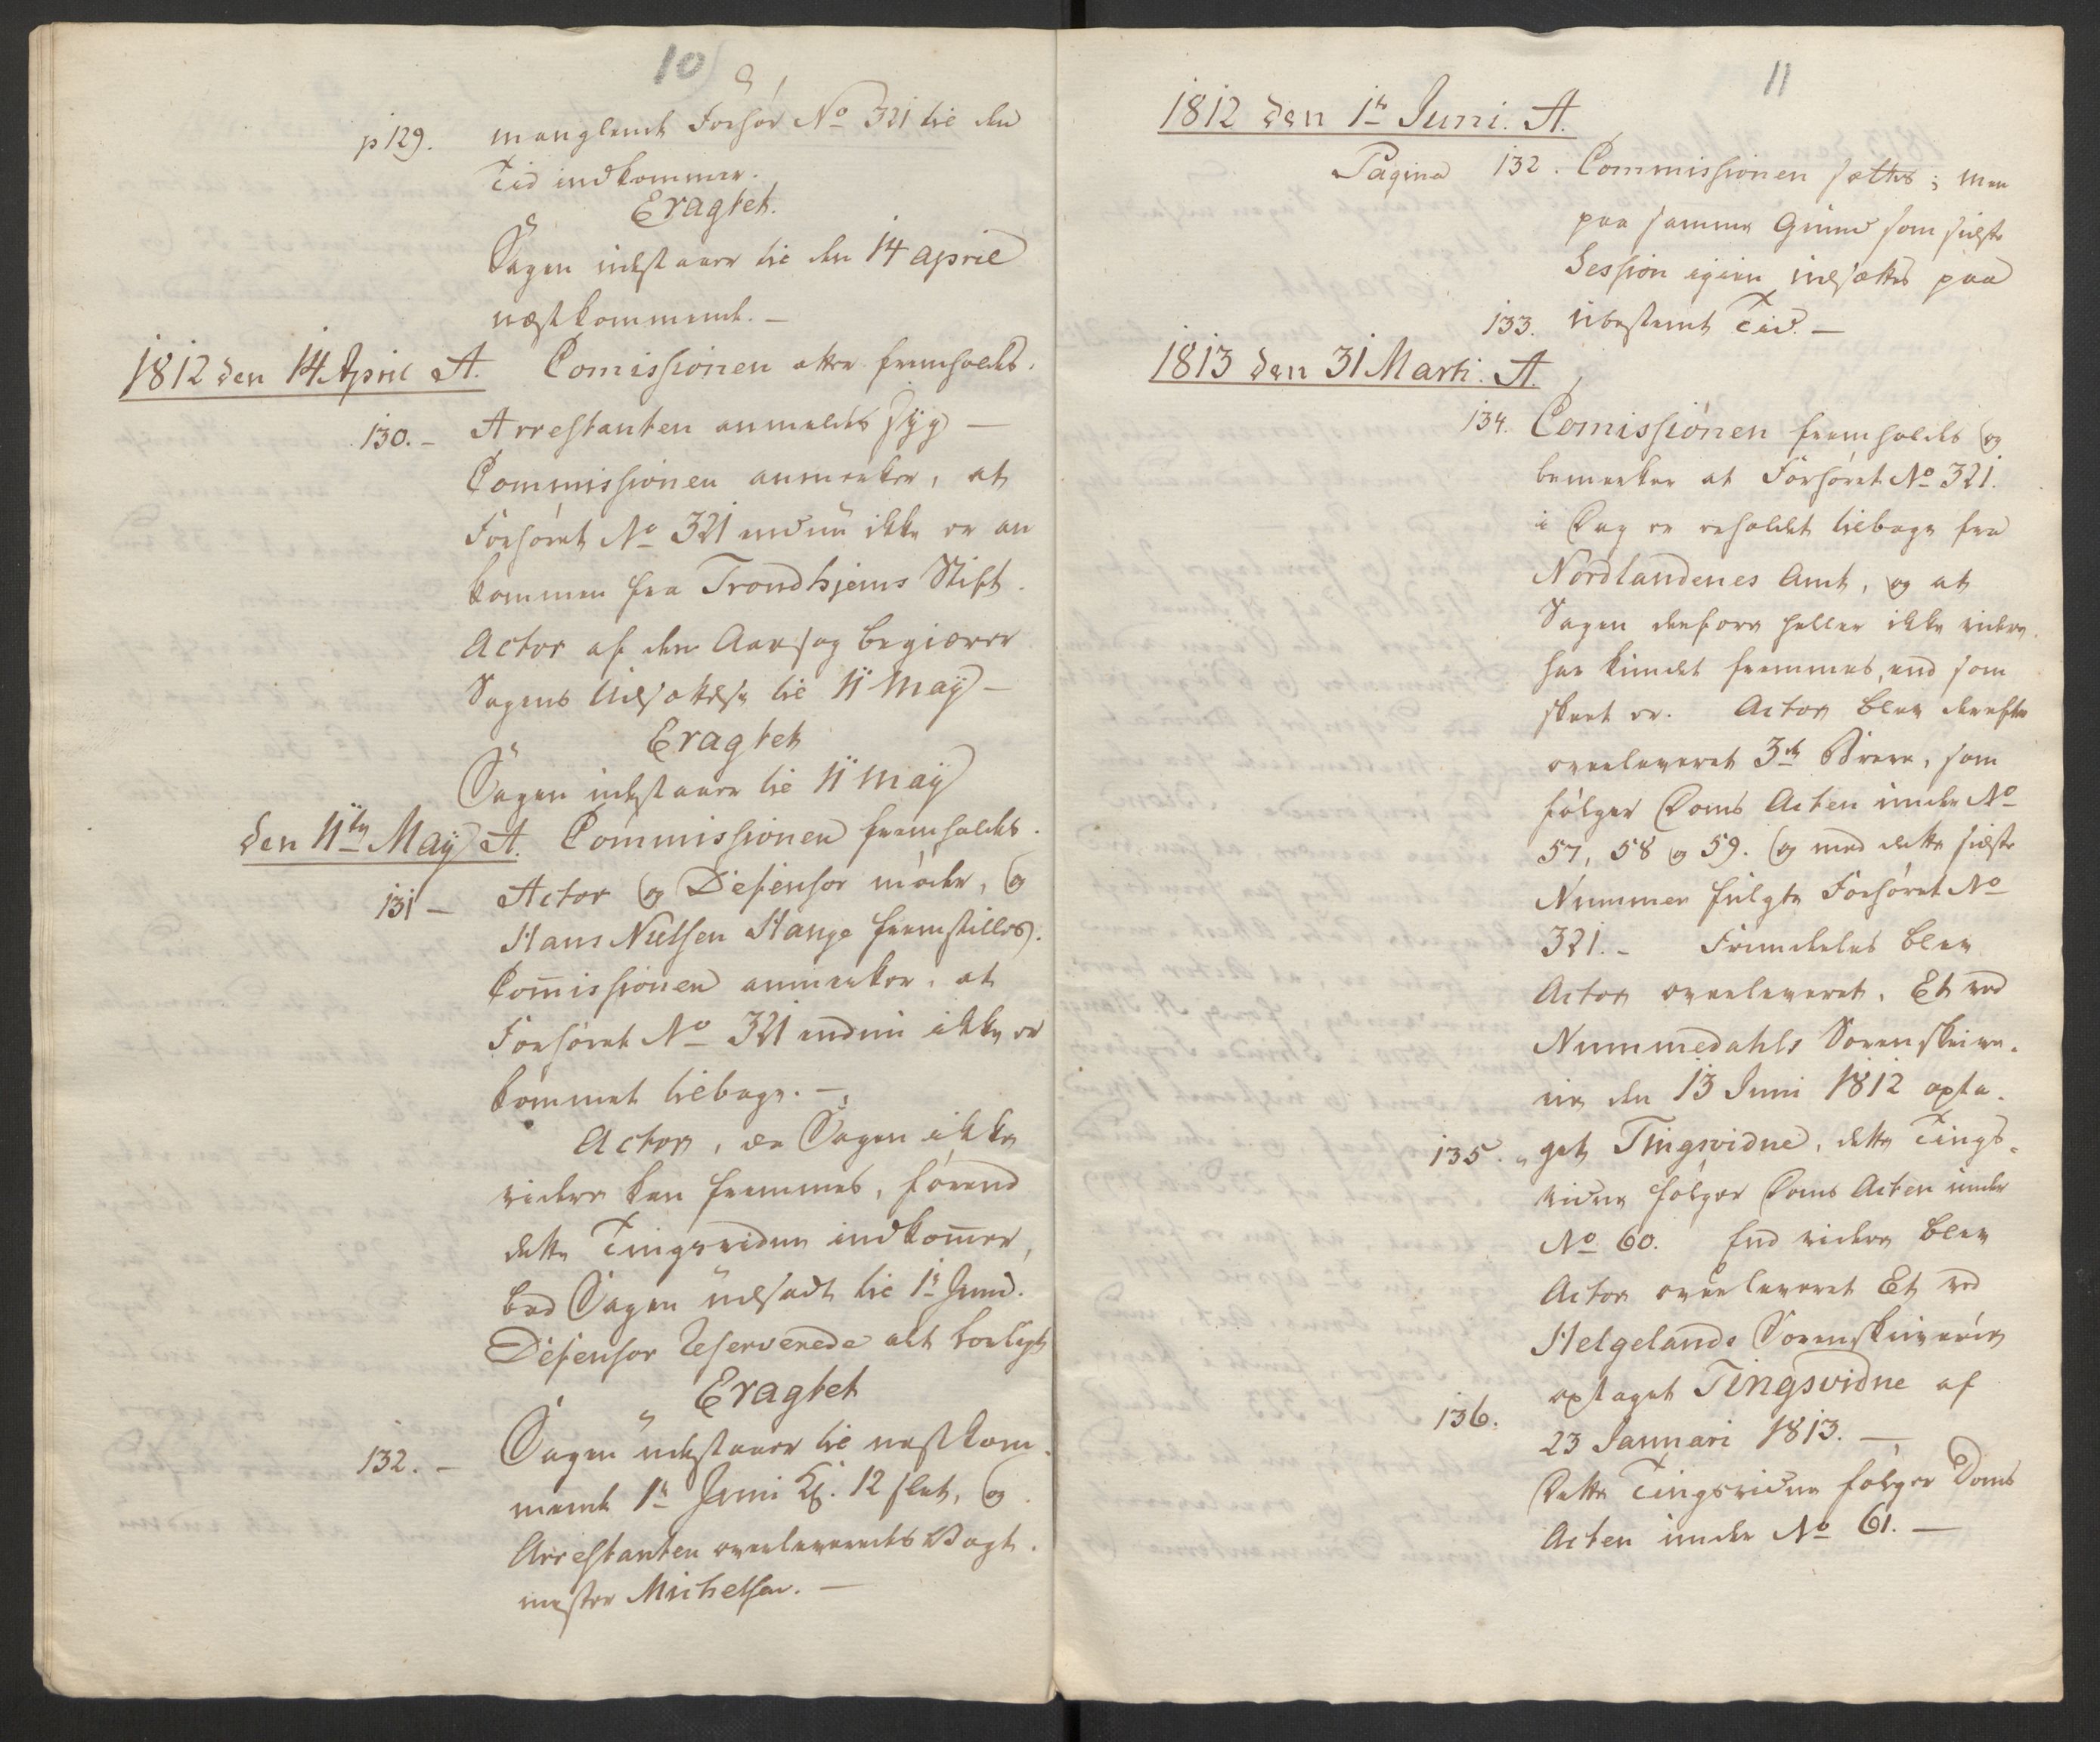 10
p 129. manglende Forhør No 321 til den
Tid indkommer.
Eragtet.
Sagen udstaaer til den 14 april
næstkommende. –
1812 den 14 April A. Comissionen atter fremholdes.
130. – Arrestanten anmeldes syg –
Commissionen anmærker, at
Forhøret No 321 endnu ikke er an
kommen fra Trondhjems Stift.
Actor af den Aarsag begiærer
Sagens Udsættelse til 11 Maÿ –
Eragtet
Sagen udstaaer til 11 maÿ
den 11te Maÿ A. Commissionen fremholdes.
131 – Actor og Defensor møder, og
Hans Nielsen Hauge fremstilles.
Com̄issionen anmærker, at
Forhøret No 321 endnu ikke er
kommet tilbage. –
Actor, da Sagen ikke
videre kan fremmes, førend
dette Tingsvidne indkom̄er,
bad Sagen udsadt til 1te Junii.
Defensor reserverede alt lovligt
Eragtet
132. – Sagen udstaaer til næstkom
mende 1te Juni Kl. 12 slet, og
Arrestanten overleveredes Vagt
mester Michelsen. –
11
1812 den 1te Juni. A.
Pagina 132. Commissionen sættes; men
paa samme Grund som sidste
Session igien udsættes paa
133. ubestemt Tid. –
1813 den 31 Marti. A.
134. Comissionen fremholdes og
bemærker at Forhøret No 321.
i Dag er erholdet tilbage fra
Nordlandenes Amt, og at
Sagen derfore heller ikke videre
har kundet fremmes, end som
skeet er. Actor blev derefter
overleveret 3de Breve, som
følger Doms Acten under No
57, 58 og 59. og med dette sidste
Nummer fulgte Forhøret No
321. – Fremdeles blev
Actor overleveret, Et ved
Nummedahls Sorenskrive-
rie den 13 Juni 1812 opta-
135. get Tingsvidne, dette Tings-
vidne følger Doms Acten under
No 60. End videre blev
Actor overleveret Et ved
Helgelands Sorenskriverie
optaget Tingsvidne af
136. 23 Januari 1813. –
Dette Tingsvidne følger Doms
Acten under No 61. –